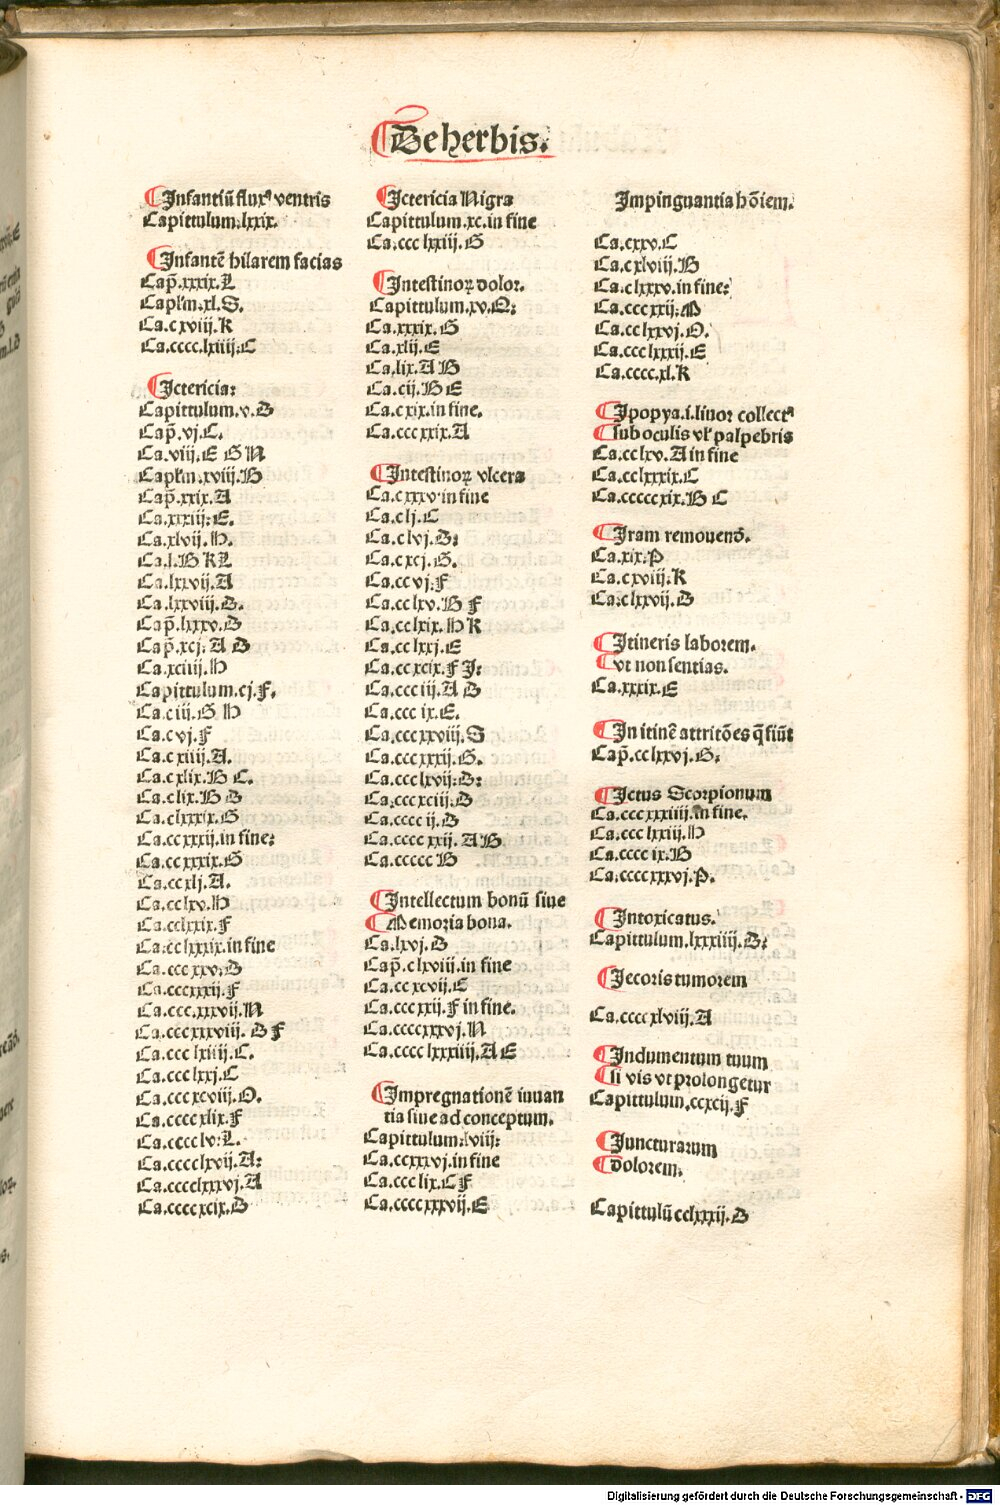 De herbis.
Infantiū fluxꝰ ventris
Capittulum.lxxix.
Infantē hilarem facias
Cap̄.xxxix.L
Capl'm.xl.S.
Ca.cxviij.K
Ca.cccc.lxiiij.C
Ictericia:
Capittulum.v.D
Cap̄.vj.C.
Ca.viij.E G N
Capl'm.xviij.B
Cap̄.xxix.A
Ca.xxxiij.E.
Ca.xlvij.H.
Ca.l.B K L
Ca.lxxvij.A
Ca.lxxviij.D.
Cap̄.lxxxv.D
Cap̄.xcj.A D
Ca.xciiij.H
Capittulum.cj.F.
Ca.ciij.G H
Ca.cvj.F
Ca.cxiiij.A.
Ca.cxlix.B C.
Ca.clix.B D
Ca.clxxxix.G
Ca.ccxxxij.in fine:
Ca.ccxxxix.G
Ca.ccxlj.A.
Ca.cclxv.H
Ca.cclxxix.F
Ca.cclxxxix.in fine
Ca.cccxxv.D
Ca.cccxxxij.F
Ca.ccc.xxxvij.N
Ca.cccxxxviij.D F
Ca.ccc lxiiij.C.
Ca.ccc lxxj.C
Ca.ccc xcviij.O.
Ca.cccc xlix.F
Ca.cccc lv.L.
Ca.cccclxvij.A:
Ca.cccclxxxvj.A
Ca.ccccxcix.D
Ictericia Nigra
Capittulum.xc.in fine
Ca.ccc lxxiij.G
Intestinoꝝ dolor.
Capittulum.xv.Q:
Ca.xxxix.G
Ca.xlij.E
Ca.lix.A B
Ca.cij.B E
Ca.cxix.in fine.
Ca.cccxxix.A
Intestinoꝝ vlcera
Ca.cxxxv.in fine
Ca.clj.C
Ca.clvj.D:
Ca.cxcj.G.
Ca.ccvj.F
Ca.cclxv.B F
Ca.cclxix.H K
Ca.cclxxj.E
Ca.ccxcix.F I:
Ca.ccciij.A D
Ca.ccc ix.E.
Ca.cccxxviij.S
Ca.cccxxxij.G.
Ca.ccclxvij.D:
Ca.cccxciij.D
Ca.ccccij.D
Ca.ccccxxij.A B
Ca.ccccc B
Intellectum bonū siue
Memoria bona.
Ca.lxvj.D
Cap̄.clxviij.in fine
Ca.ccxcvij.E
Ca.cccxxij.F in fine.
Ca.ccccxxxvj.N
Ca.cccclxxxiiij.A E
Impregnationē iuuan
tia siue ad conceptum.
Capittulum.lviij:
Ca.ccxxxvj.in fine
Ca.ccc lix.C F
Ca.ccccxxxvij.E
Impinguantia hōiem.
Ca.cxxv.C
Ca.cxlviij.B
Ca.clxxxv.in fine:
Ca.cccxxij.M
Ca.cclxxvj.O.
Ca.ccclxxxij.E
Ca.cccc.xl.K
Ipopya.i.linor collectꝰ
sub oculis vl' palpebris
Ca.cclxv.A in fine
Ca.cclxxxix.C
Ca.cccccxix.B C
Iram remouenō.
Ca.xix.P
Ca.cxviij.K
Ca.clxxvij.D
Itineris laborem.
vt non sentias.
Ca.xxxix.E
In itinē attritōes q̄ fiūt
Cap̄.cclxxvj.G.
Ictus Scorpionum
Ca.cccxxxiiij.in fine.
Ca.ccc lxxiij.H
Ca.cccc ix.B
Ca.ccccxxxvj.P.
Intoxicatus.
Capittulum.lxxxiiij.D:
Iecoris tumorem
Ca.ccccxlviij.A
Indumentum tuum
si vis vt prolongetur
Capittulum.ccxcij.F
Iuncturarum
dolorem.
Capittulū cclxxxij.D
Digitalisierung gefördert durch die Deutsche Forschungsgemeinschaft - DFG